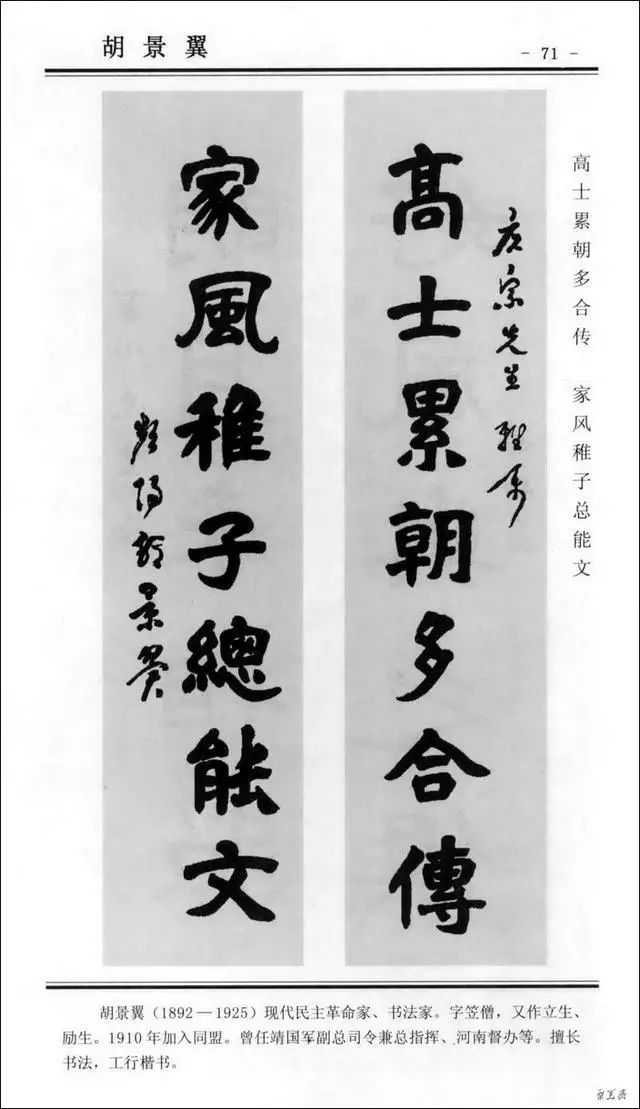 胡景翼
- 71 -
高士累朝多合传 家风稚子总能文
宗先生雅属
高士累朝多合傳
家風稚子總能文
景翼
胡景翼(1892—1925)现代民主革命家、书法家。字笠僧,又作立生、
励生。1910年加入同盟。曾任靖国军副总司令兼总指挥、河南督办等。擅长
书法,工行楷书。